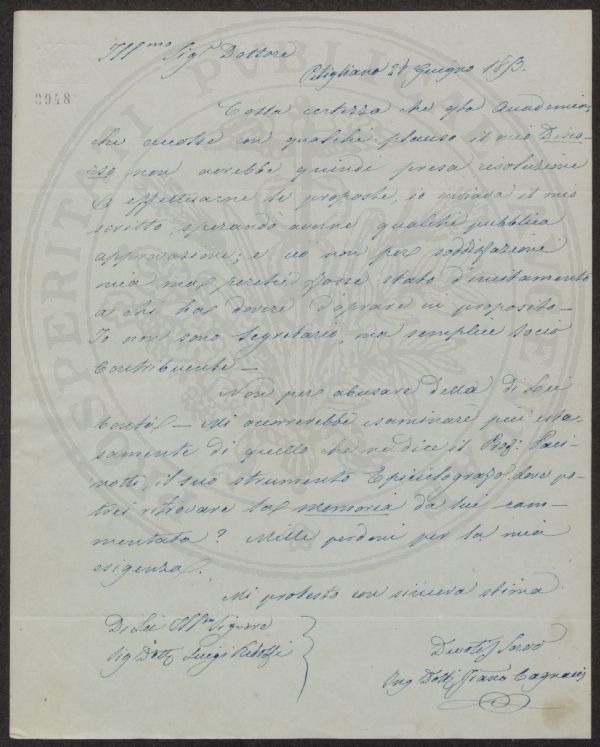 Ill.mo Sig.r Dottore
Pitigliano 28 Giugno 18
3948
Colla certezza che q.ta Accademia,
che accolse con qualche plauso il mio Disco-
rso non avrebbe quindi presa risoluzione
di effettuarne le proposte, io inviava il mio
scritto sperando averne qualche pubblica
approvazione; e ciò non per soddisfazione
mia ma perchè fosse stato d'incitamento
a chi ha dovere d'oprare in proposito_
Io non sono Segretario, ma semplice Socio
Contribuente_
Non per abusare della di Lei
bontà_ Mi occorrerebbe esaminare più este-
samente di quello che ne dice il Prof. Paci-
notti, il suo strumento Epiciclografo. dove po-
trei ritrovare la memoria da lui com-
mentata? Mille perdoni per la mia
esigenza.
Mi protesto con sincera stima
Di Lei Ill.mo Signore
Sig Dott. Luigi Ridolfi
Devot. Servo
Ing Dott.
PROSPERITATI PUBLICAE